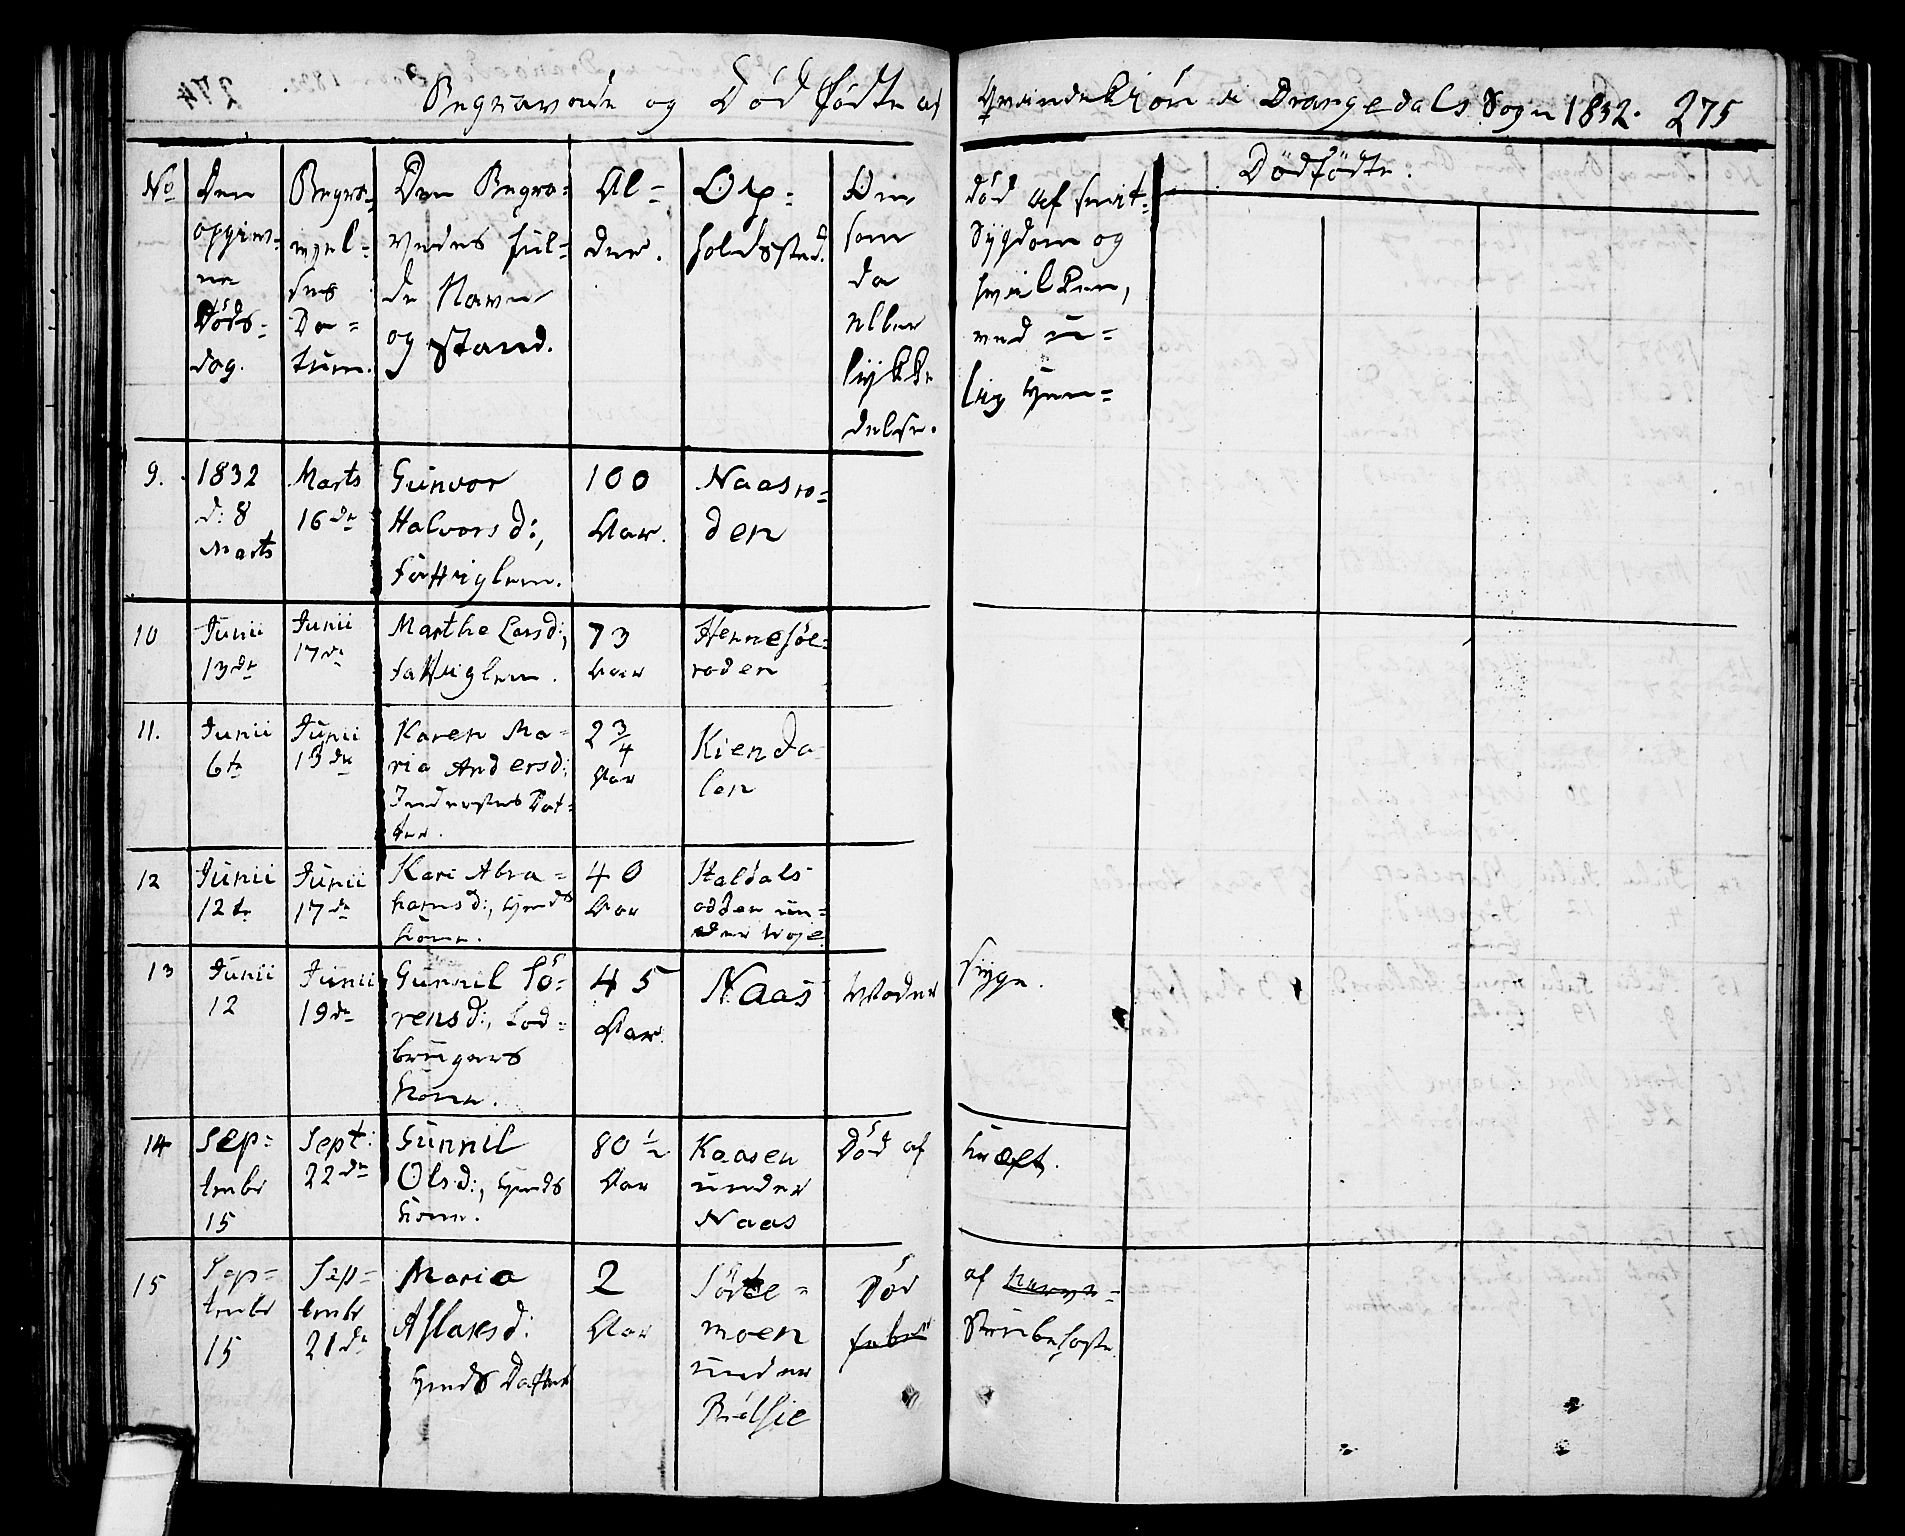 Begravede og Død fødte af Qvindekiön i Drangedals Sogn 1832. 275
274
No
Den
opgivne
Døds-
dag.
Begra-
velsens
Da-
tum.
Den Begra-
vedes ful-
de Navn
og Stand.
Al-
der.
Op-
holdsted.
Om
som
da
eller
lykke
delse.
död af smit-
Sygdom og
hvilken,
ved u-
lig hæn-
Dödfödte.
9.
1832
d: 8
Marts
Marts
16de
Gunvor
Halvorsd:,
Fattiglem.
100
Aar.
Naasro-
den
10
Junii
13de
Junii
17de
Marthe Larsd:,
Fattiglem.
73
Aar
Hennesöe-
roden
11.
Junii
6te
Junii
13de
Karen Ma-
ria Andersd:
Inderstes Dat-
ter.
2 3/4
Aar
Kienda-
len
12
Junii
12te
Junii
17de
Kari Abra-
hamsd:, Hmds
Kone.
40
Aar
Staldals
odden un-
der Woje
13
Junii
12
Junii
19de
Gunnil Sö-
rensd:, Lod-
brugers
Kone.
45
Aar.
Naas
Moder
syge.
14
Sep-
tembr
15
Sept:
22de
Gunnil
Olsd:, Hmds
Kone.
80 1/2
Aar
Kaasen
under
Naas
Død af
Kræft.
15
Sep-
tembr
15
Sep-
tembr
21de
Maria
Aslaksd:
Hmds Datter
2
Aar
Sörte-
moen
under
Brölsie
Död
af
Strubehoste.